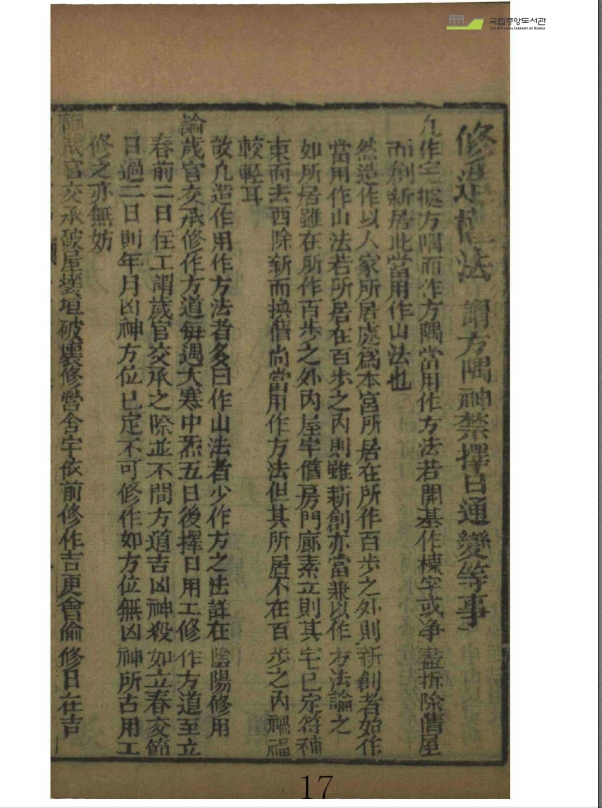 국립중앙도서관
THE NATIONAL LIBRARY OF KOREA
修造 法 謂方隅神禁擇日通變等事
凡作 方隅而作方隅當用作方法若開基作棟宇或淨盡拆除舊屋
而創新居此當用作山法也
然造作以人家所居處為本宮所居在所作百步之外則新創者始作
當用作山法若所居在百步之內則雖新創亦當兼以作方法論之
如所居雖在所作百步之外內屋牢僭房門廊素立則其宅已定符
東而去西除新而換舊尚當用作方法但其所居不在百步之內禍福
較輕耳
故凡造作用作方法者多曰作山法者少作方之法詳在陰陽修用
論歲官交承修作方道每遇大寒中炁五日後擇日用工修作方道至立
春前二日住工謂歲官交承之際並不問方道吉凶神殺如立春交節
日過二日則年月凶神方位已定不可修作如方位無凶神所占用工
修之亦無妨
論歲官交承破屋壞垣破壞修營舍宇依前修作吉更會倫修日在吉
17